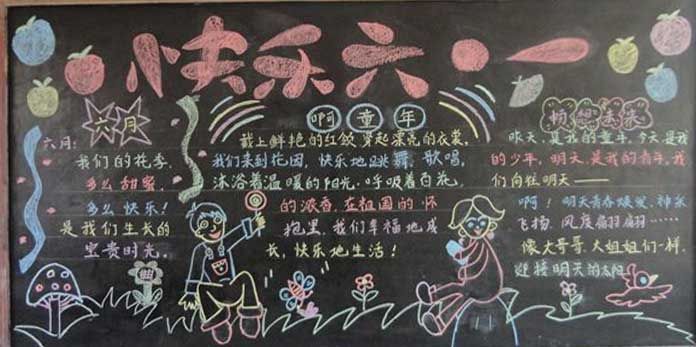 快乐六·一
六月
六月:
我们的花季,
多么甜蜜,
多么快乐!
是我们生长的
宝贵时光。
啊 童年
戴上鲜艳的红绞,穿起漂亮的衣裳,
我们来到花园,快乐地跳舞、歌唱,
沐浴着温暖的阳光,呼吸着百花,
的浓香,在祖国的怀
抱里,我们幸福地成
长,快乐地生活!
畅想未来
昨天,是我的童年,今天是我
的少年,明天,是我的青年,我
们向往明天——
啊!明天青春焕发,神采
飞扬,风度翩翩……
像大哥哥、大姐姐们一样,
迎接明天的太阳